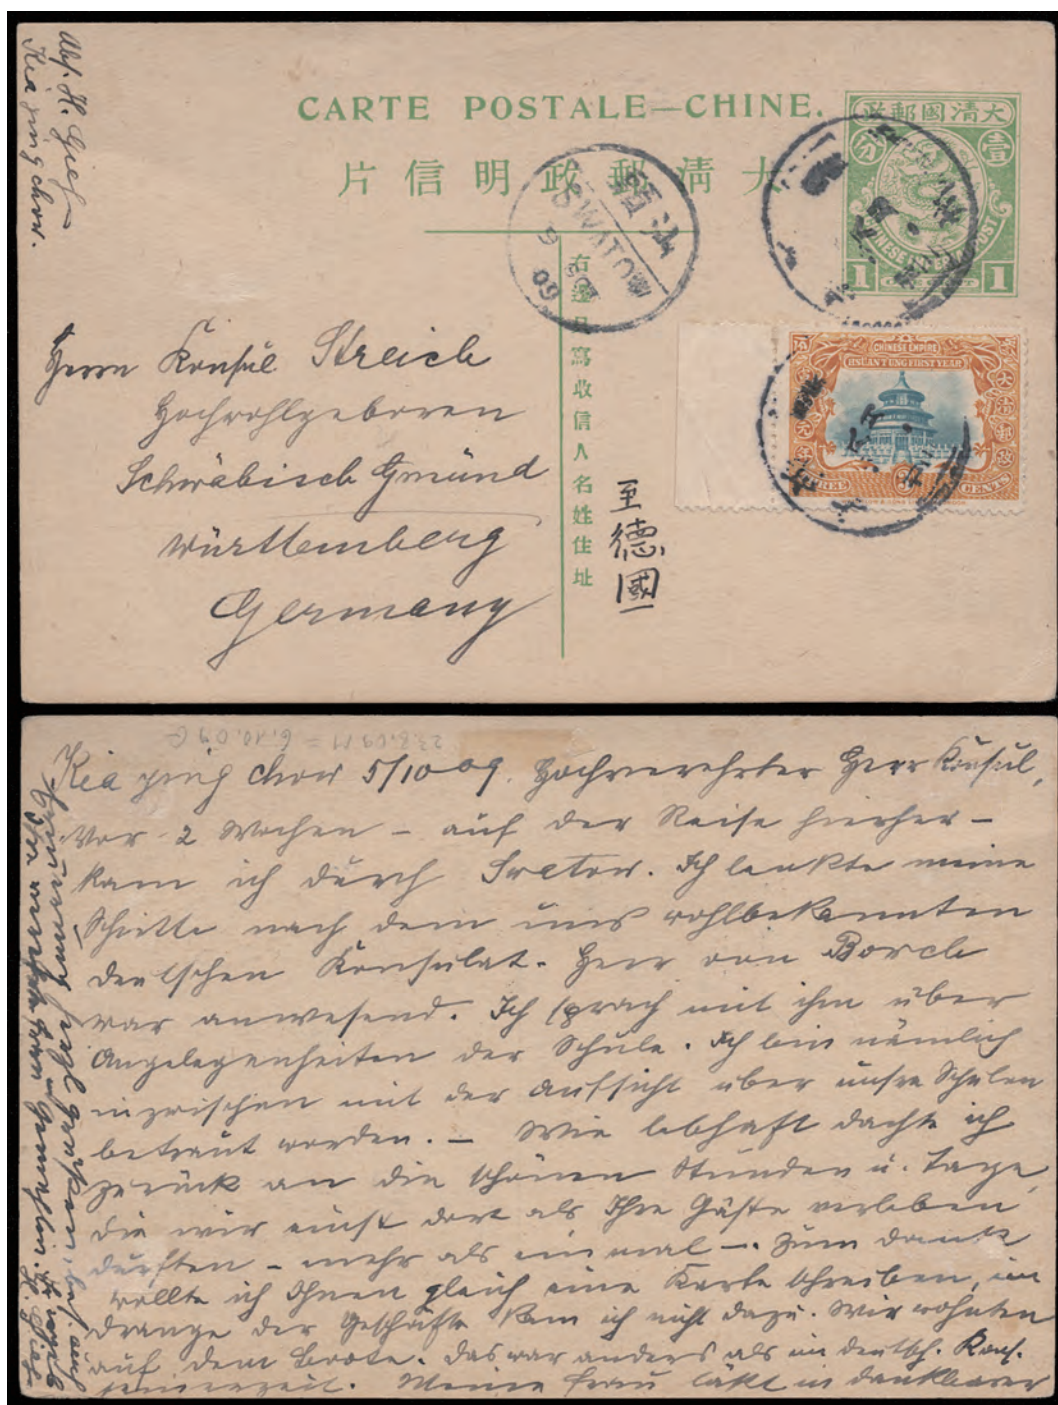 Abs. H. Gieß
Kia ying chow.
CARTE POSTALE—CHINE.
大清郵政明信片
大清國郵政
壹
分
CHINESE POST
1 1
汕頭
SWATOW
9
09
CHINESE EMPIRE
HSUAN TUNG FIRST YEAR
CENTS
右邊只寫收信人名姓住址
Herrn Konsul Streich
Hochwohlgeboren
Schwäbisch Gmünd
Württemberg
Germany
至德國
23.8.09/1 = 6.10.09 G
Kia ying chow 5/10 09. Hochverehrter Herr Konsul,
Vor 2 Wochen – auf der Reise hierher –
kam ich durch Swatow. Ich lenkte meine
Schritte nach dem uns wohlbekannten
deutschen Konsulat. Herr von Borch
war anwesend. Ich sprach mit ihm über
Angelegenheiten der Schule. Ich bin nämlich
inzwischen mit der Aufsicht über unsre Schulen
betraut worden. – Wie lebhaft dachte ich
zurück an die schönen Stunden u. Tage,
die wir einst dort als Ihre Gäste verleben
durften – mehr als einmal –. Zum Dank
wollte ich Ihnen gleich eine Karte schreiben, im
Drange der Geschäfte kam ich nicht dazu. Wir wohnten
auf dem Boote. Das war anders als im deutsch. Kons.
seinerzeit. Meine Frau läßt in dankbarer
Erinnerung herzl. grüßen, bes. auch
Ihre Frau Gemahlin.